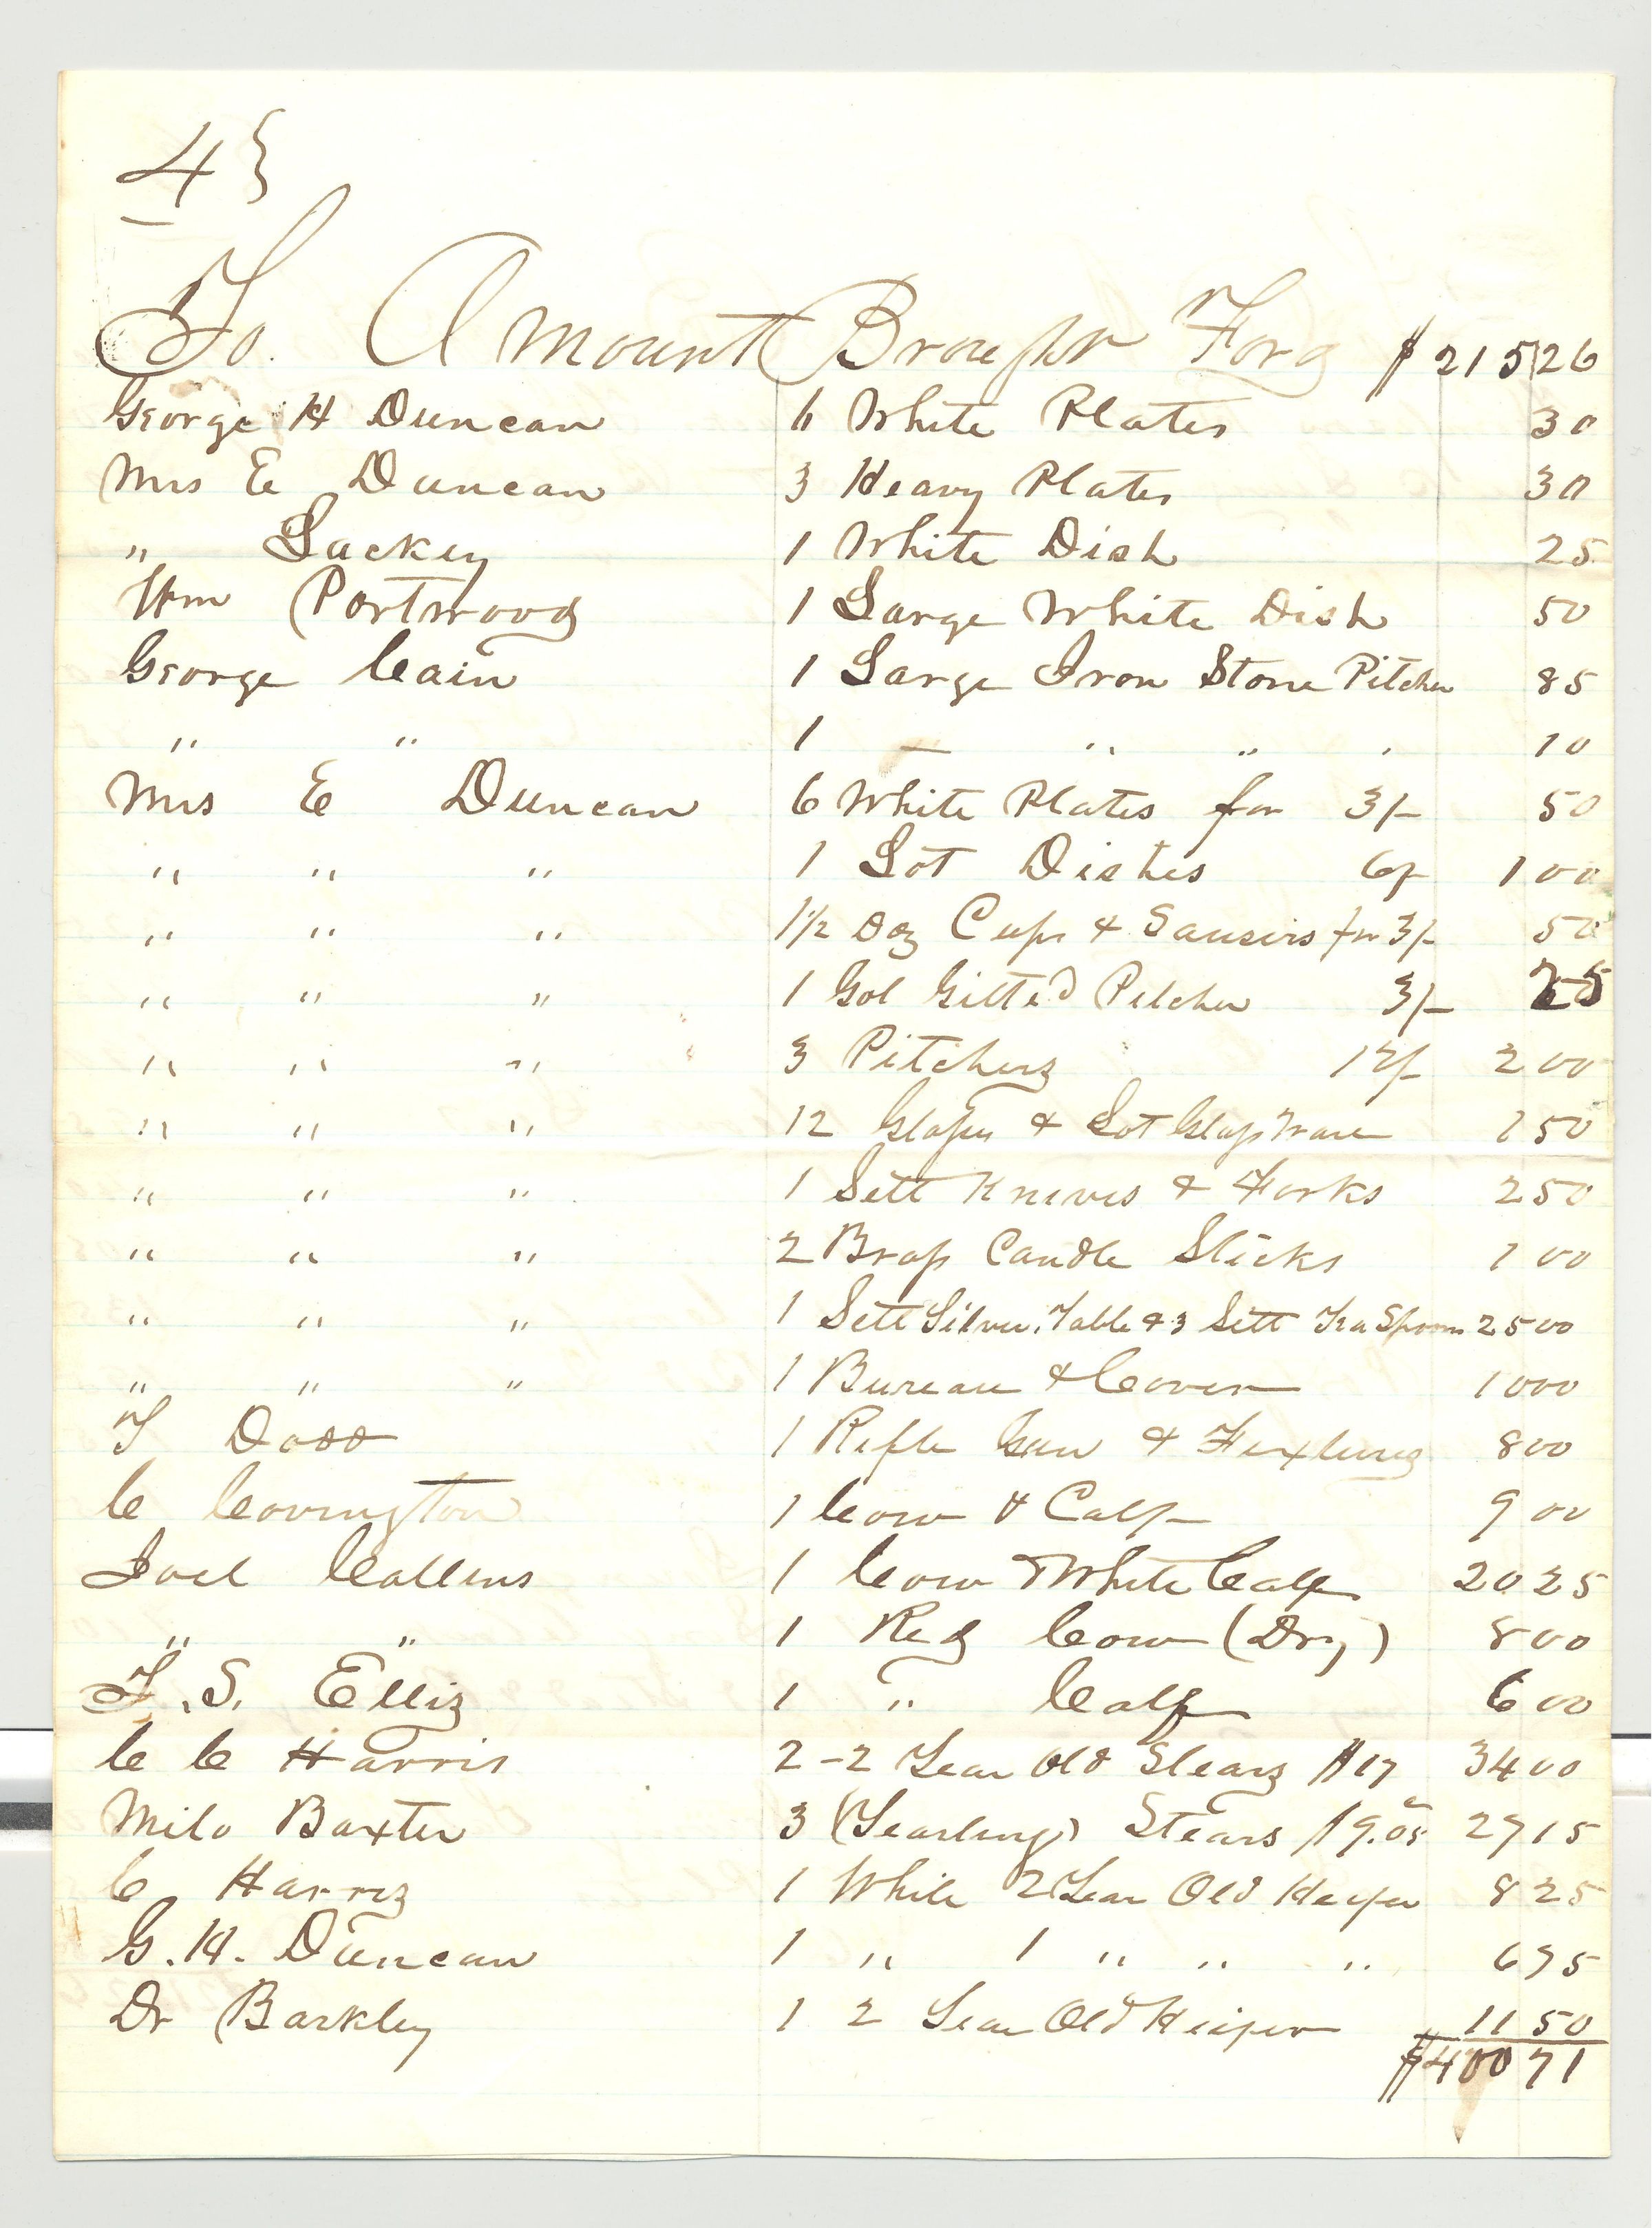 4}
To Amount Brought Ford $ 215 26
George H Duncan 6 White Plates 30
Mrs E Duncan 3 Heavy Plates 30
" Lackey 1 White Dish 25
Wm Portwood 1 Large White Dish 50
George Cain 1 Large Iron Stone Pitcher 85
" " 1 — " " " 10
Mrs E Duncan 6 White Plates for 3/- 50
" " " 1 Lot Dishes 6/- 1 00
" " " 1 1/2 Doz Cups & Sausers for 3/- 50
" " " 1 Gol Gilted Pitcher 3/- 75
" " " 3 Pitchers 12/- 2 00
" " " 12 Glasses & Lot Glass Ware 1 50
" " " 1 Sett Knives & Forks 2 50
" " " 2 Brass Candle Sticks 1 00
" " " 1 Sett Silver Table & 3 Sett Tea Spoons 25 00
" " " 1 Bureau & Cover 10 00
T Dodd 1 Rifle Gun & Fixtures 8 00
C Covington 1 Cow & Calf 9 00
Joel Collins 1 Cow & White Calf 20 25
" " 1 Red Cow (Dry) 8 00
T. S. Ellis 1 " Calf 6 00
C C Harris 2 - 2 Year Old Stears $17 34 00
Milo Baxter 3 (Yearlings) Stears $9.05 27 15
C Harris 1 White 2 Year Old Heifer 8 25
G. H. Duncan 1 " 1 " " " 6 75
Dr Barkley 1 2 Year Old Heifer 11 50
$400 71